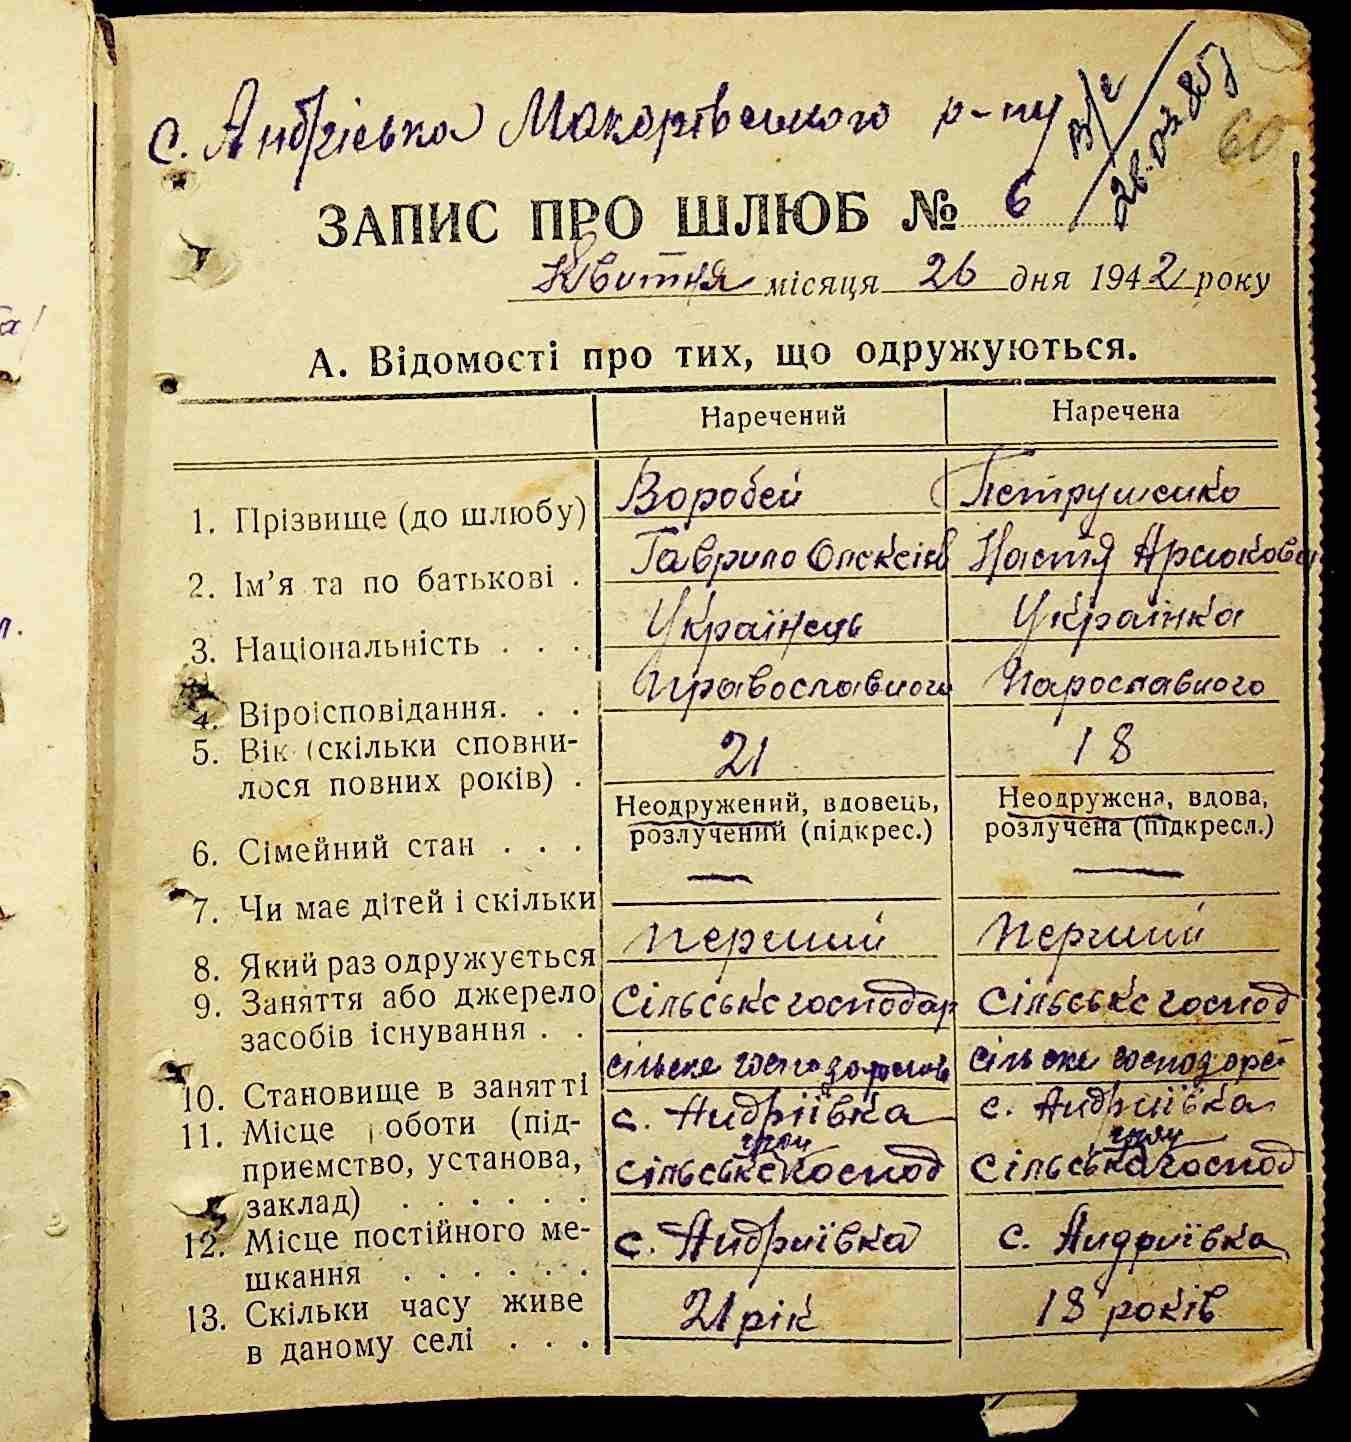 с. Андріївка Макарівського р-ну
в/с
26.03.85
60
ЗАПИС ПРО ШЛЮБ № 6
Квітня місяця 26 дня 1942 року
А. Відомості про тих, що одружуються.
Наречений Наречена
1. Прізвище (до шлюбу) Воробей Петрушенко
2. Ім’я та по батькові . Гаврило Олексіїв Настя
3. Національність . . . Українець Українка
4. Віроісповідання. . . Православного Парославного
5. Вік (скільки сповни-
лося повних років) . 21 18
6. Сімейний стан . . . Неодружений, вдовець, розлучений (підкрес.) Неодружена, вдова, розлучена (підкресл.)
7. Чи має дітей і скільки — —
8. Який раз одружується Перший Перший
9. Заняття або джерело
засобів існування . . Сільське господар Сільське господ
10. Становище в занятті сільске сільске
11. Місце роботи (під- с. Андріївка с. Андриївка
приємство, установа, сільське господ сільська господ
заклад) . . . . . .
12. Місце постійного ме- с. Андриївка с. Андриївка
шкання . . . . . .
13. Скільки часу живе 21 рік 18 років
в даному селі . . .